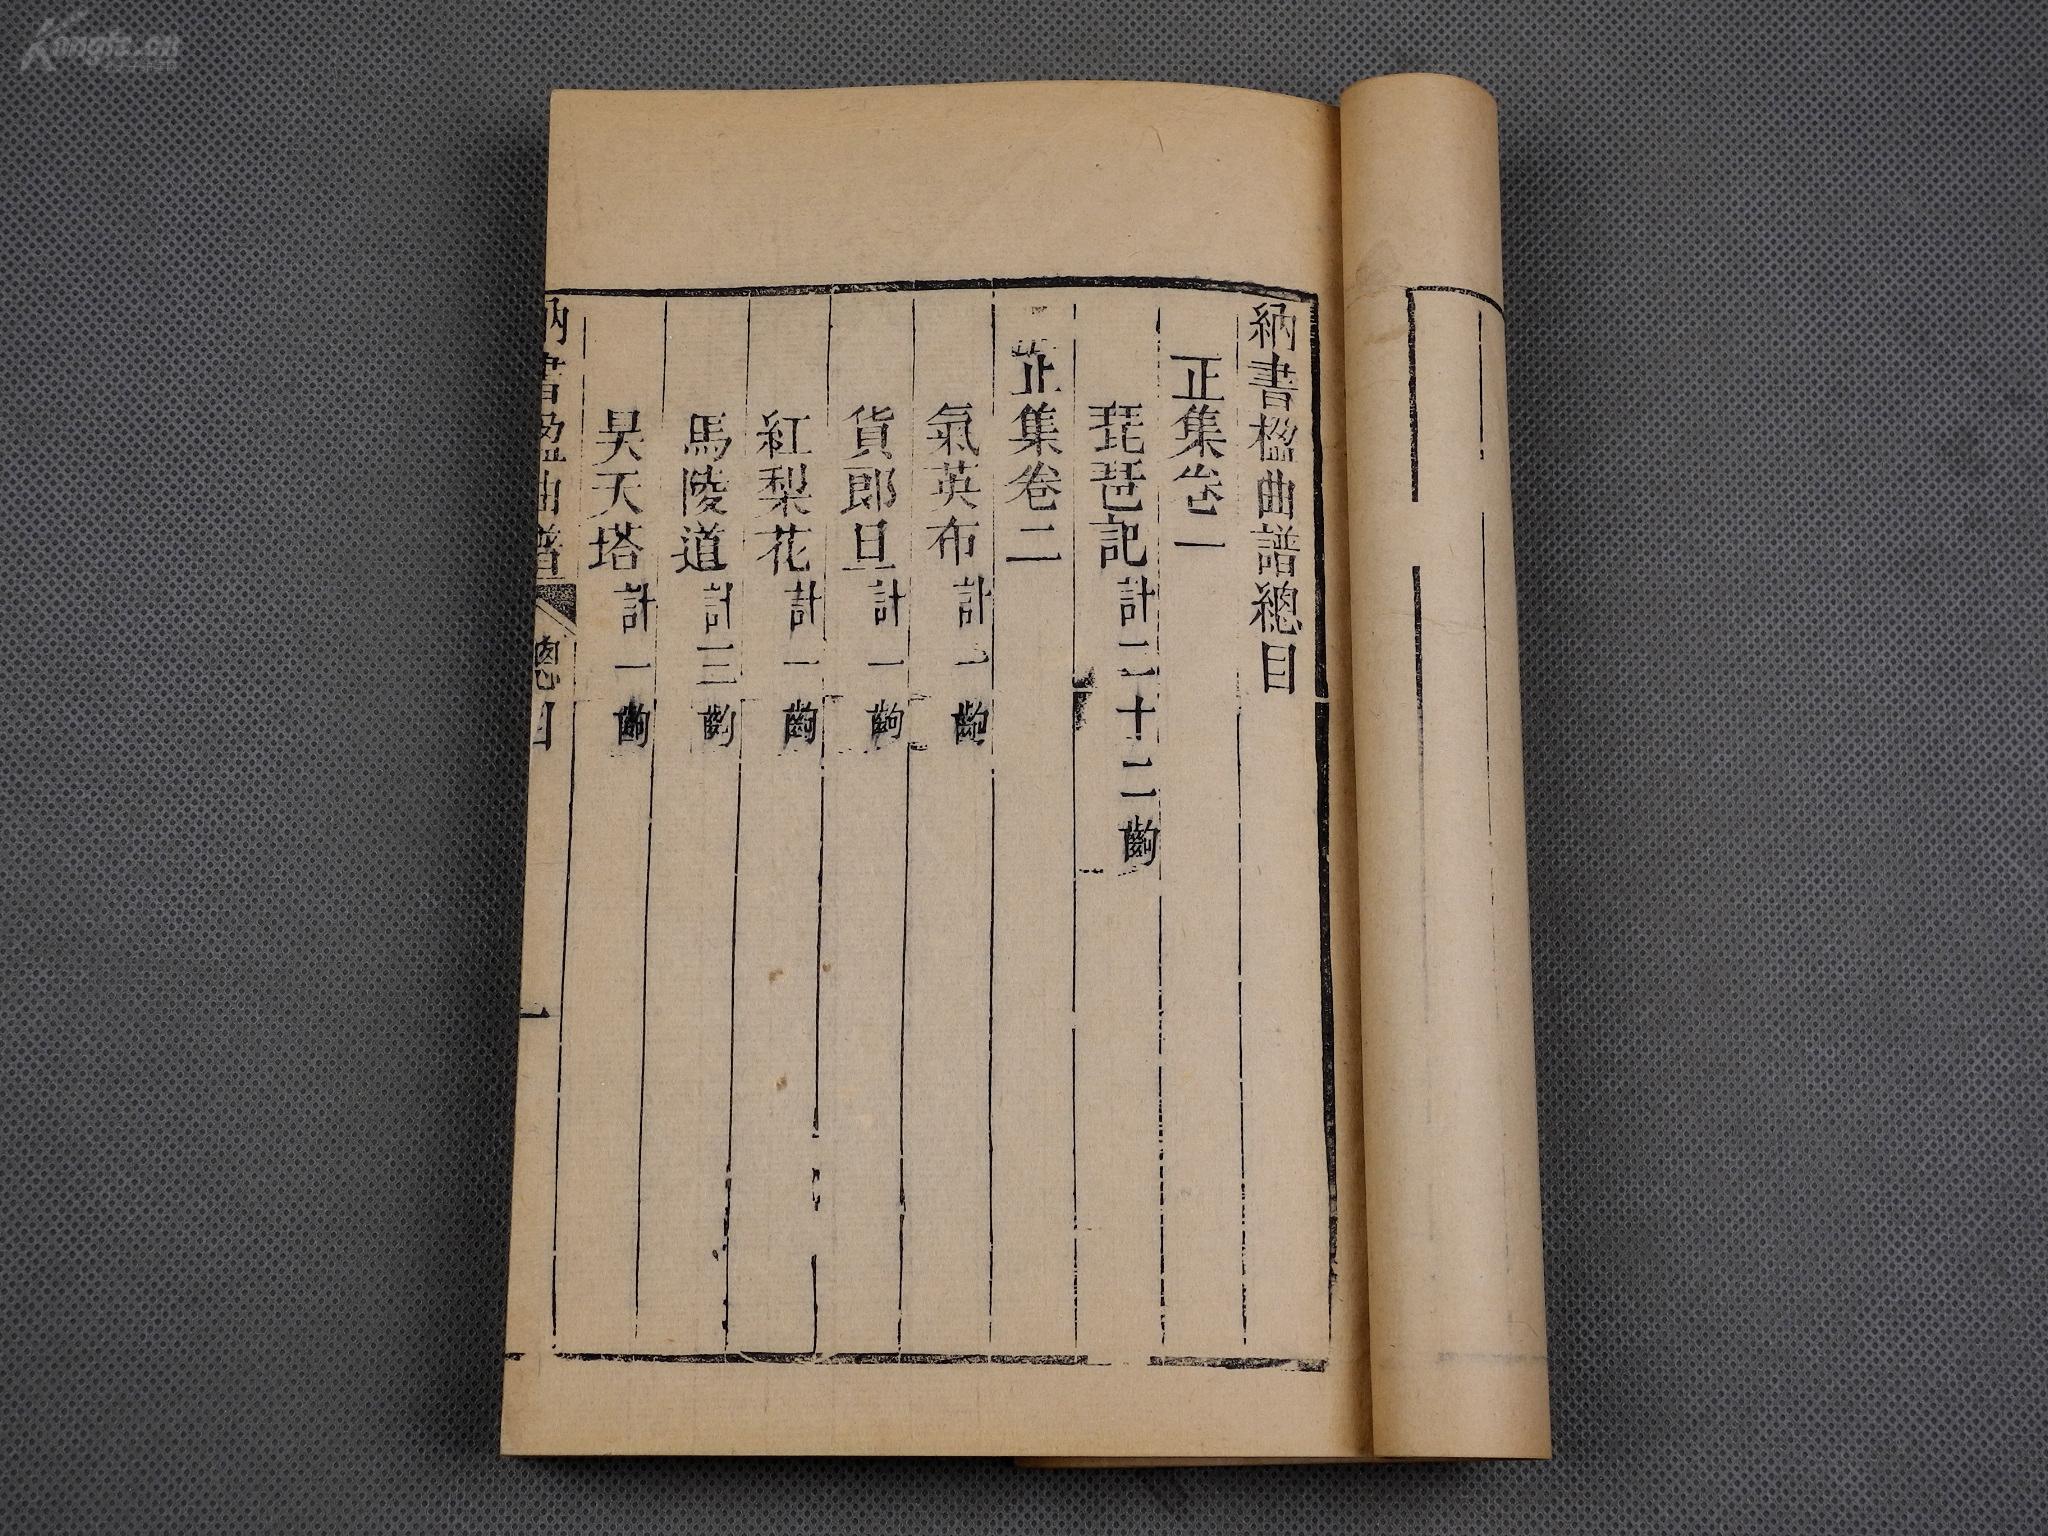 納書楹曲譜總目
正集卷一
琵琶記計二十二齣
正集卷二
氣英布計一齣
貨郎旦計一齣
紅梨花計一齣
馬陵道計三齣
昊天塔計一齣
納書楹曲譜 總目
一
Kongfz.cn